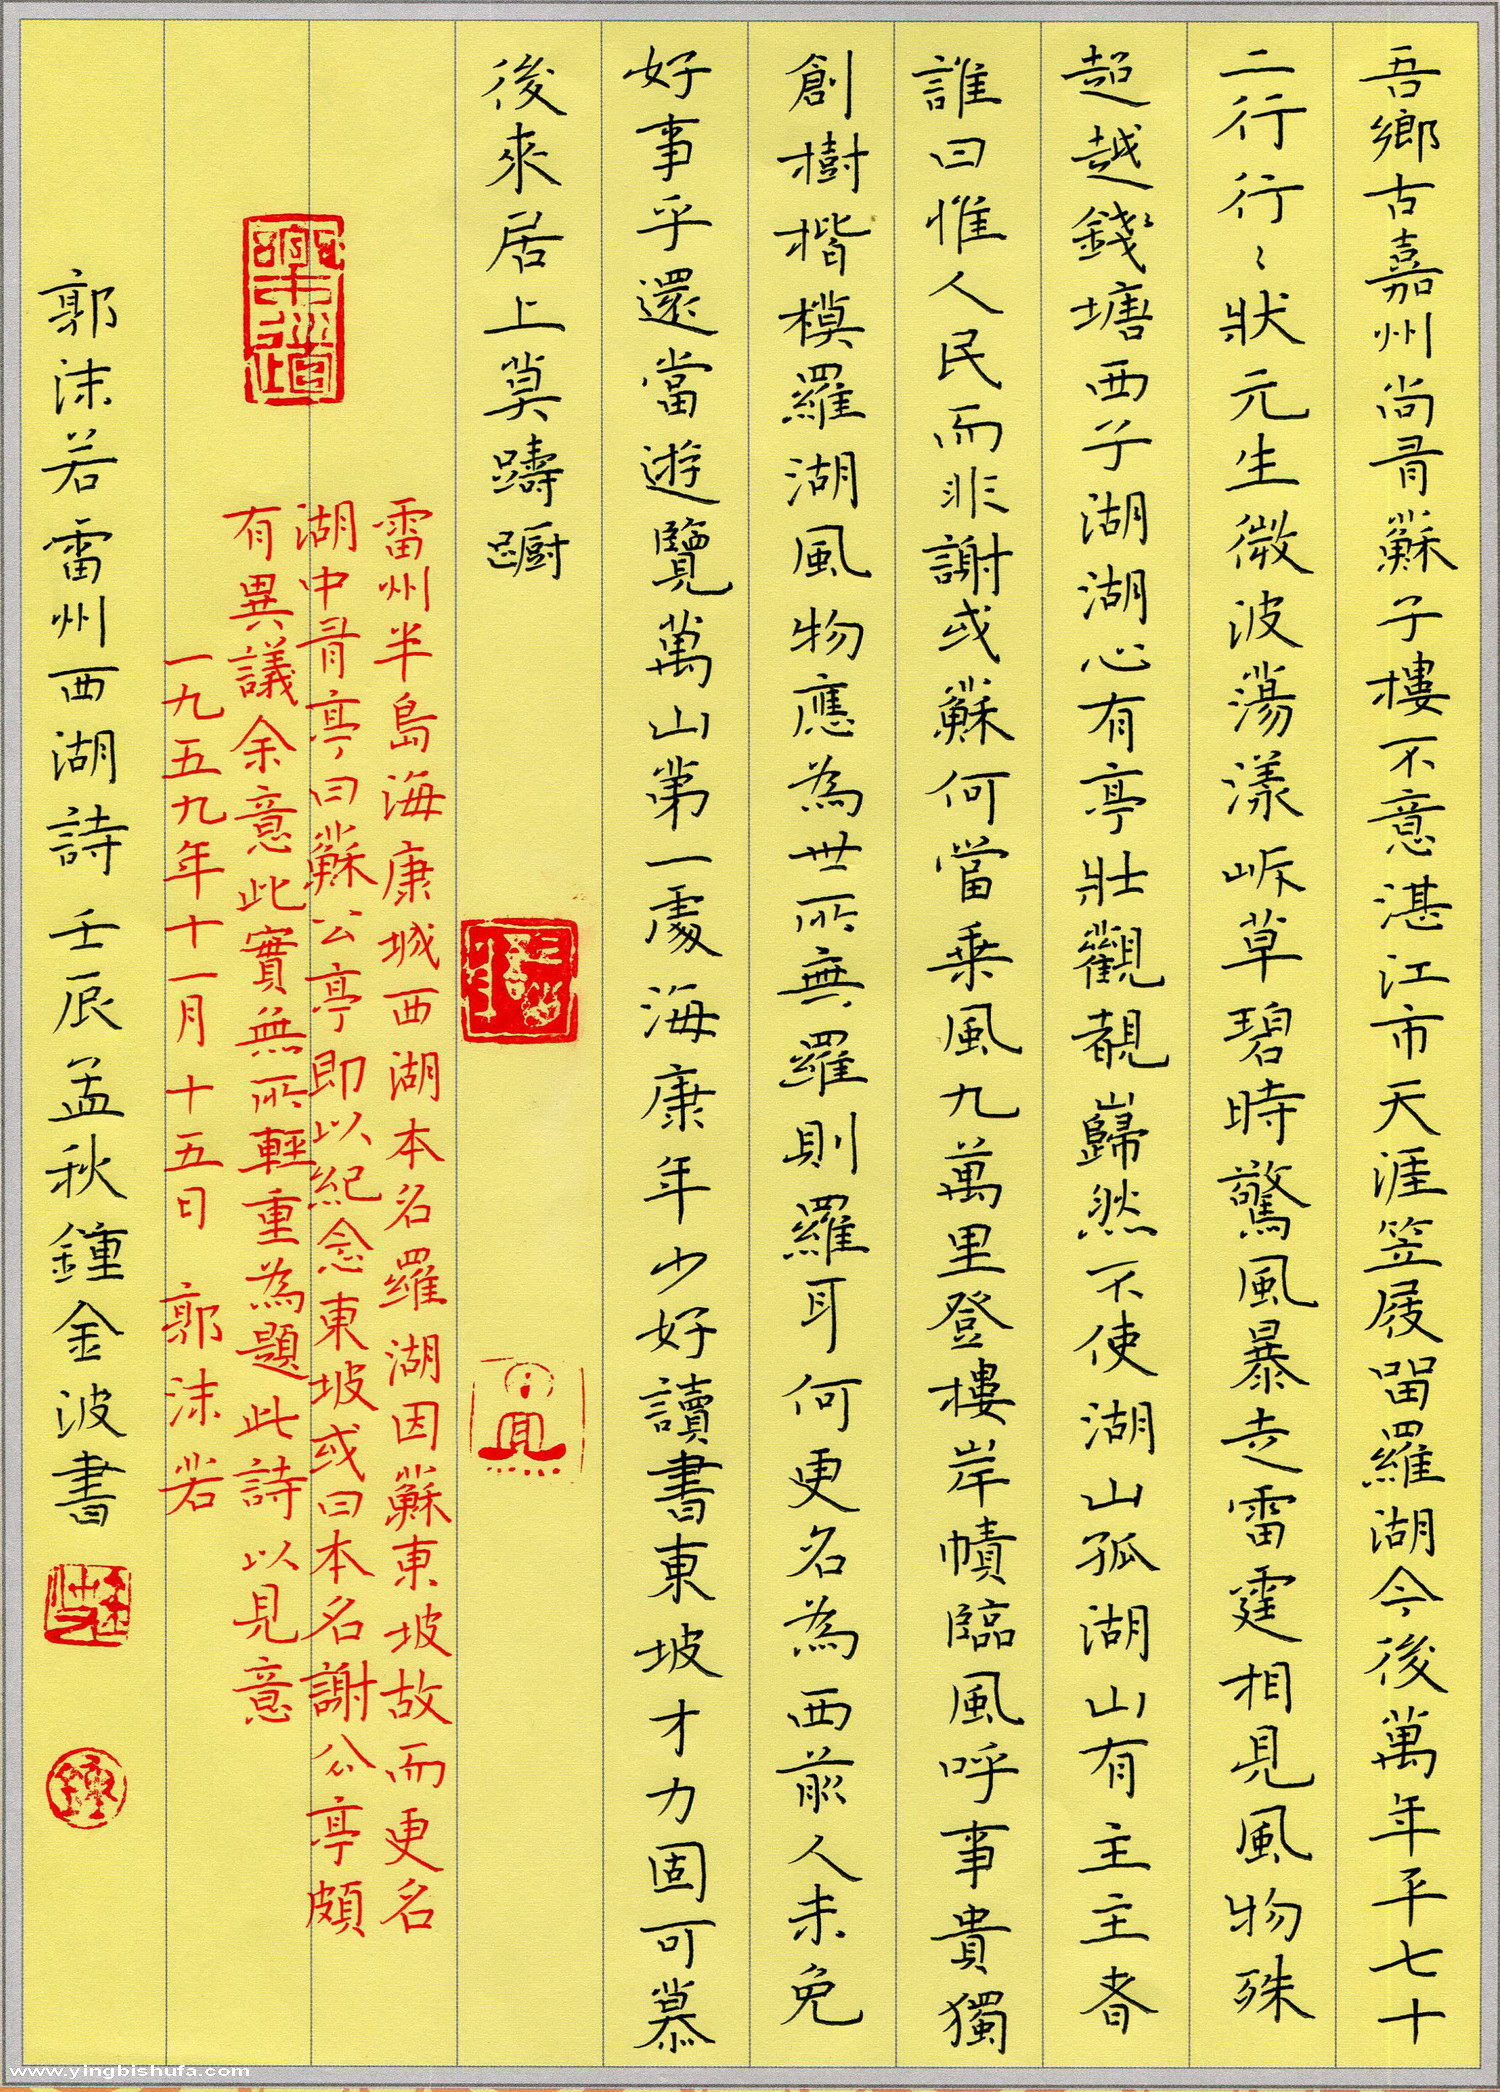 吾鄉古嘉州尚有蘇子樓不意湛江市天涯笠屐留羅湖今後萬年平七十
二行行〻狀元生微波蕩漾岸草碧時驚風暴走雷霆相見風物殊
超越錢塘西子湖湖心有亭壯觀覩巋然不使湖山孤湖山有主主者
誰曰惟人民而非謝或蘇何當乘風九萬里登樓岸幘臨風呼事貴獨
創樹楷模羅湖風物應為世所無羅則羅耳何更名為西前人未免
好事乎還當遊覽萬山第一處海康年少好讀書東坡才力固可慕
後來居上莫躊躕
雷州半島海康城西湖本名羅湖因蘇東坡故而更名
湖中有亭曰蘇公亭即以紀念東坡或曰本名謝公亭頗
有異議余意此實無所輕重為題此詩以見意
一九五九年十一月十五日 郭沫若
郭沫若雷州西湖詩 壬辰孟秋鍾金波書
www.yingbishufa.com